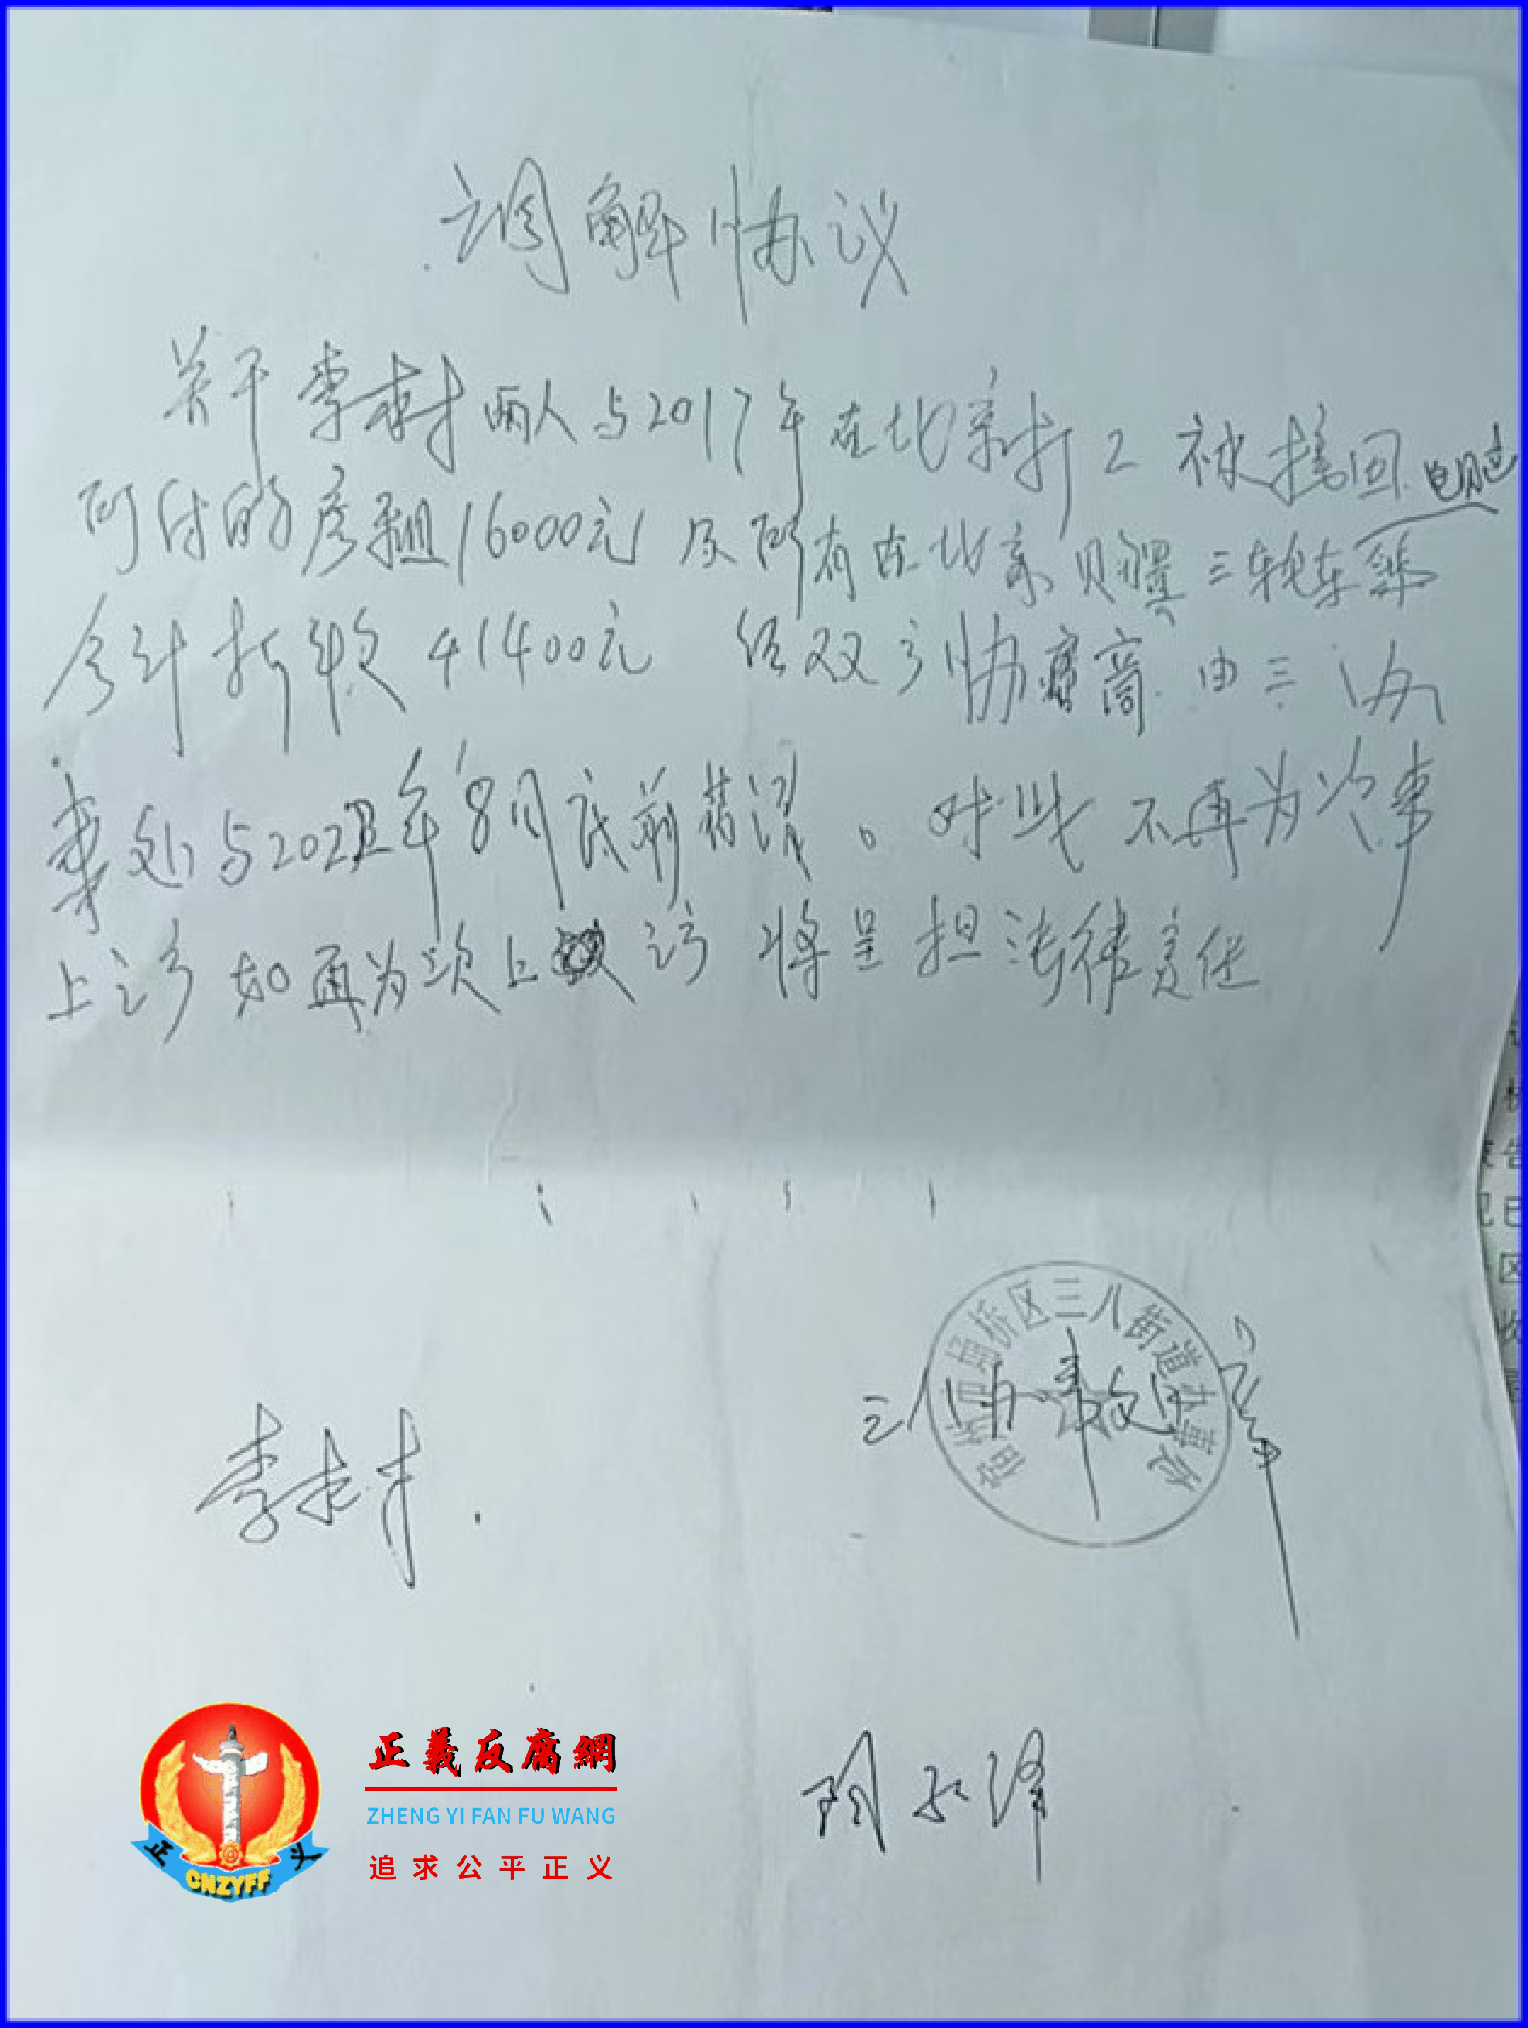 调解协议
关于李李才两人与2017年在北京打工被接回
所付的房租16000元及所有在北京购置三轮车等
合计折款41400元 经双方协商 由三八办
事处与2022年8月底前落实。对此不再为此事
上访如再为次上访将呈担法律责任
宿州市埇桥区三八街道办事处
三八
李
正義反腐網
ZHENG YI FAN FU WANG
追求公平正义
正
义
CNZYFF